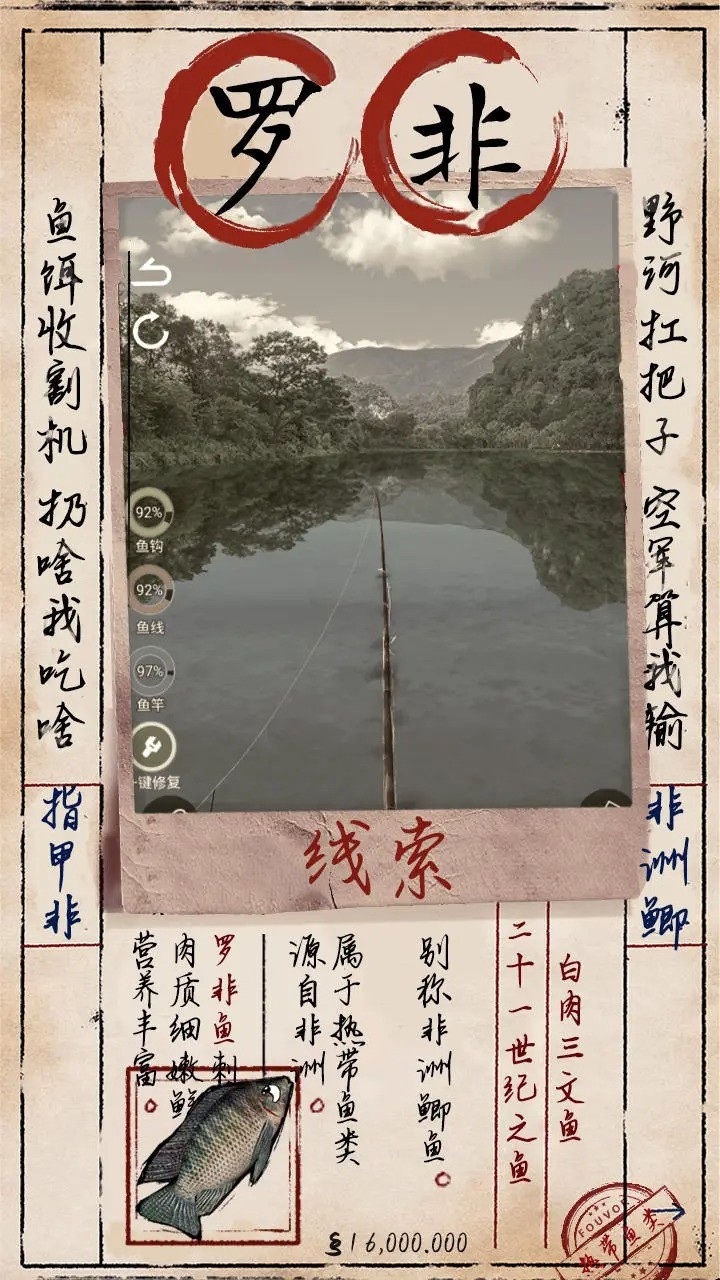 罗非
野河扛把子 空军算我输
非洲鲫
鱼饵收割机 扔啥我吃啥
指甲非
92%
鱼钩
92%
鱼线
97%
鱼竿
键修复
线索
白肉三文鱼
二十一世纪之鱼
别称非洲鲫鱼
属于热带鱼类
源自非洲
罗非鱼刺
肉质细嫩鲜
营养丰富
§16,000.000
FOUVOR
热带鱼类